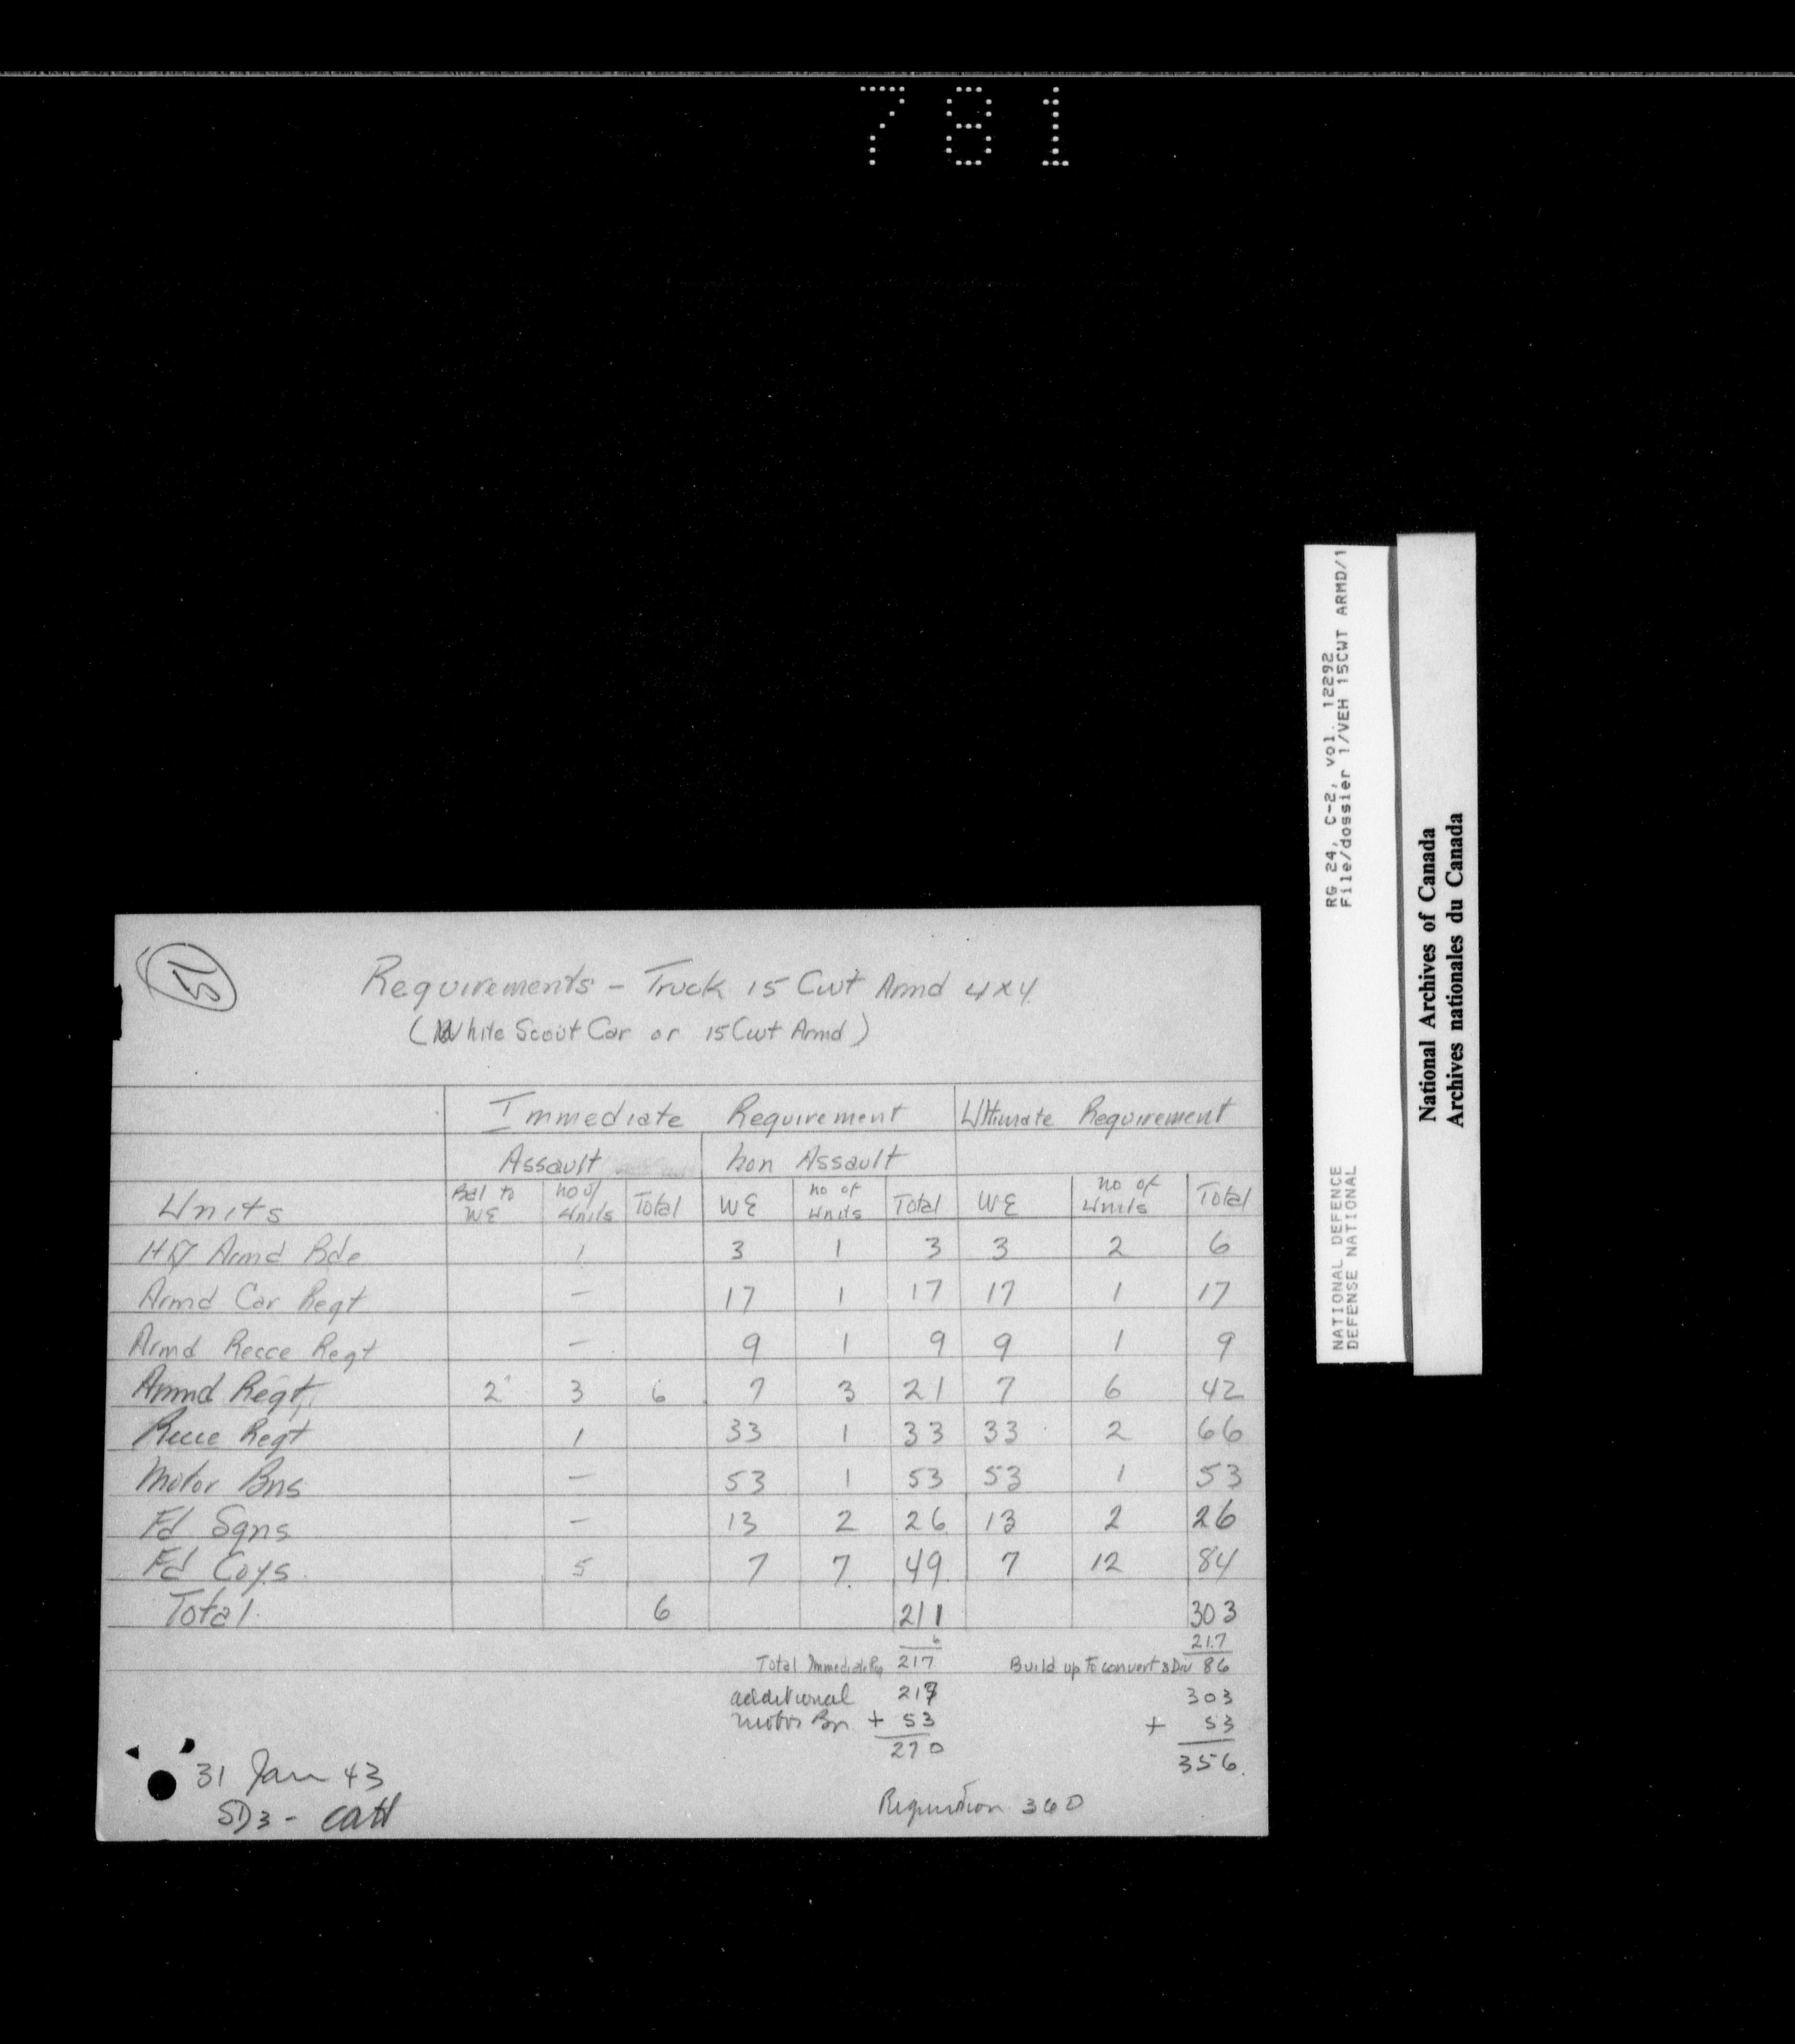 781
15
Requirements - Truck 15 Cwt Armd 4x4
(White Scout Car or 15 Cwt Armd)
Immediate Requirement Ultimate Requirement
Assault Non Assault
Units Bal to WE No of Units Total WE No of Units Total WE No of Units Total
HQ Armd Bde 1 3 1 3 3 2 6
Armd Car Regt - 17 1 17 17 1 17
Armd Recce Regt - 9 1 9 9 1 9
Armd Regt. 2 3 6 7 3 21 7 6 42
Recce Regt 1 33 1 33 33 2 66
Motor Bns - 53 1 53 53 1 53
Fd Sqns - 13 2 26 13 2 26
Fd Coys 5 7 7 49 7 12 84
Total 6 211 303
6 217
Total Immediate Req 217 Build up to convert 3 Div 86
additional 217 303
motor Bn + 53 + 53
270 356.
31 Jan 43
SD3 -
Requisition 360
RG 24, C-2, vol. 12292
File/dossier 1/VEH 15CWT ARMD/1
NATIONAL DEFENCE
DEFENSE NATIONAL
National Archives of Canada
Archives nationales du Canada